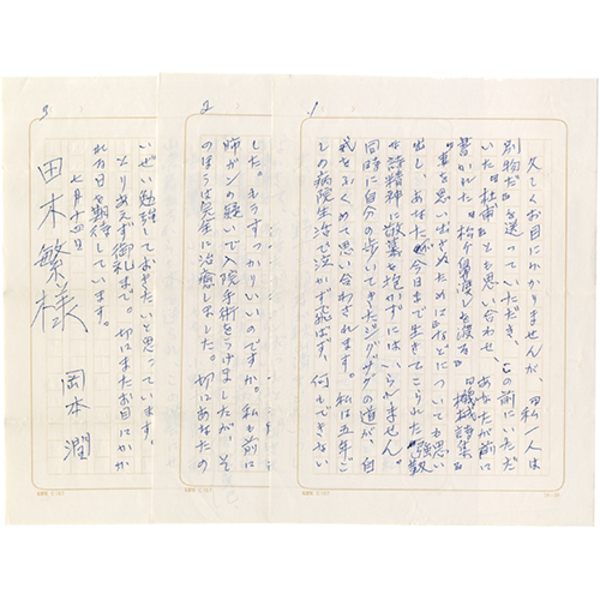 1
久しくお目にかかりませんが、『私一人は
別物だ』を送っていただき、この前にいただ
いた『杜甫』とも思い合わせ、あなたが前に
書かれた『松ヶ鼻渡しを渡る』『機械詩集』
事を思い出さぬために』などについても思い
出し、あなたが今日まで生きてこられた強靱
な詩精神に敬慕を抱かずにはいられません。
同時に自分の歩いてきたジグザグの道が、自
戒をふくめて思い合わされます。私は五年ご
しの病院生活で泣かず飛ばず、何もできない
2
した。もうすっかりいいのですか。私も前に
肺ガンの疑いで入院手術をうけましたが、そ
のほうは完全に治癒しました。切にあなたの
3
いぜい勉強しておきたいと思っています。
とりあえず御礼まで。切にまたお目にかか
れる日を期待しています。
七月十四日
岡本潤
田木繁様